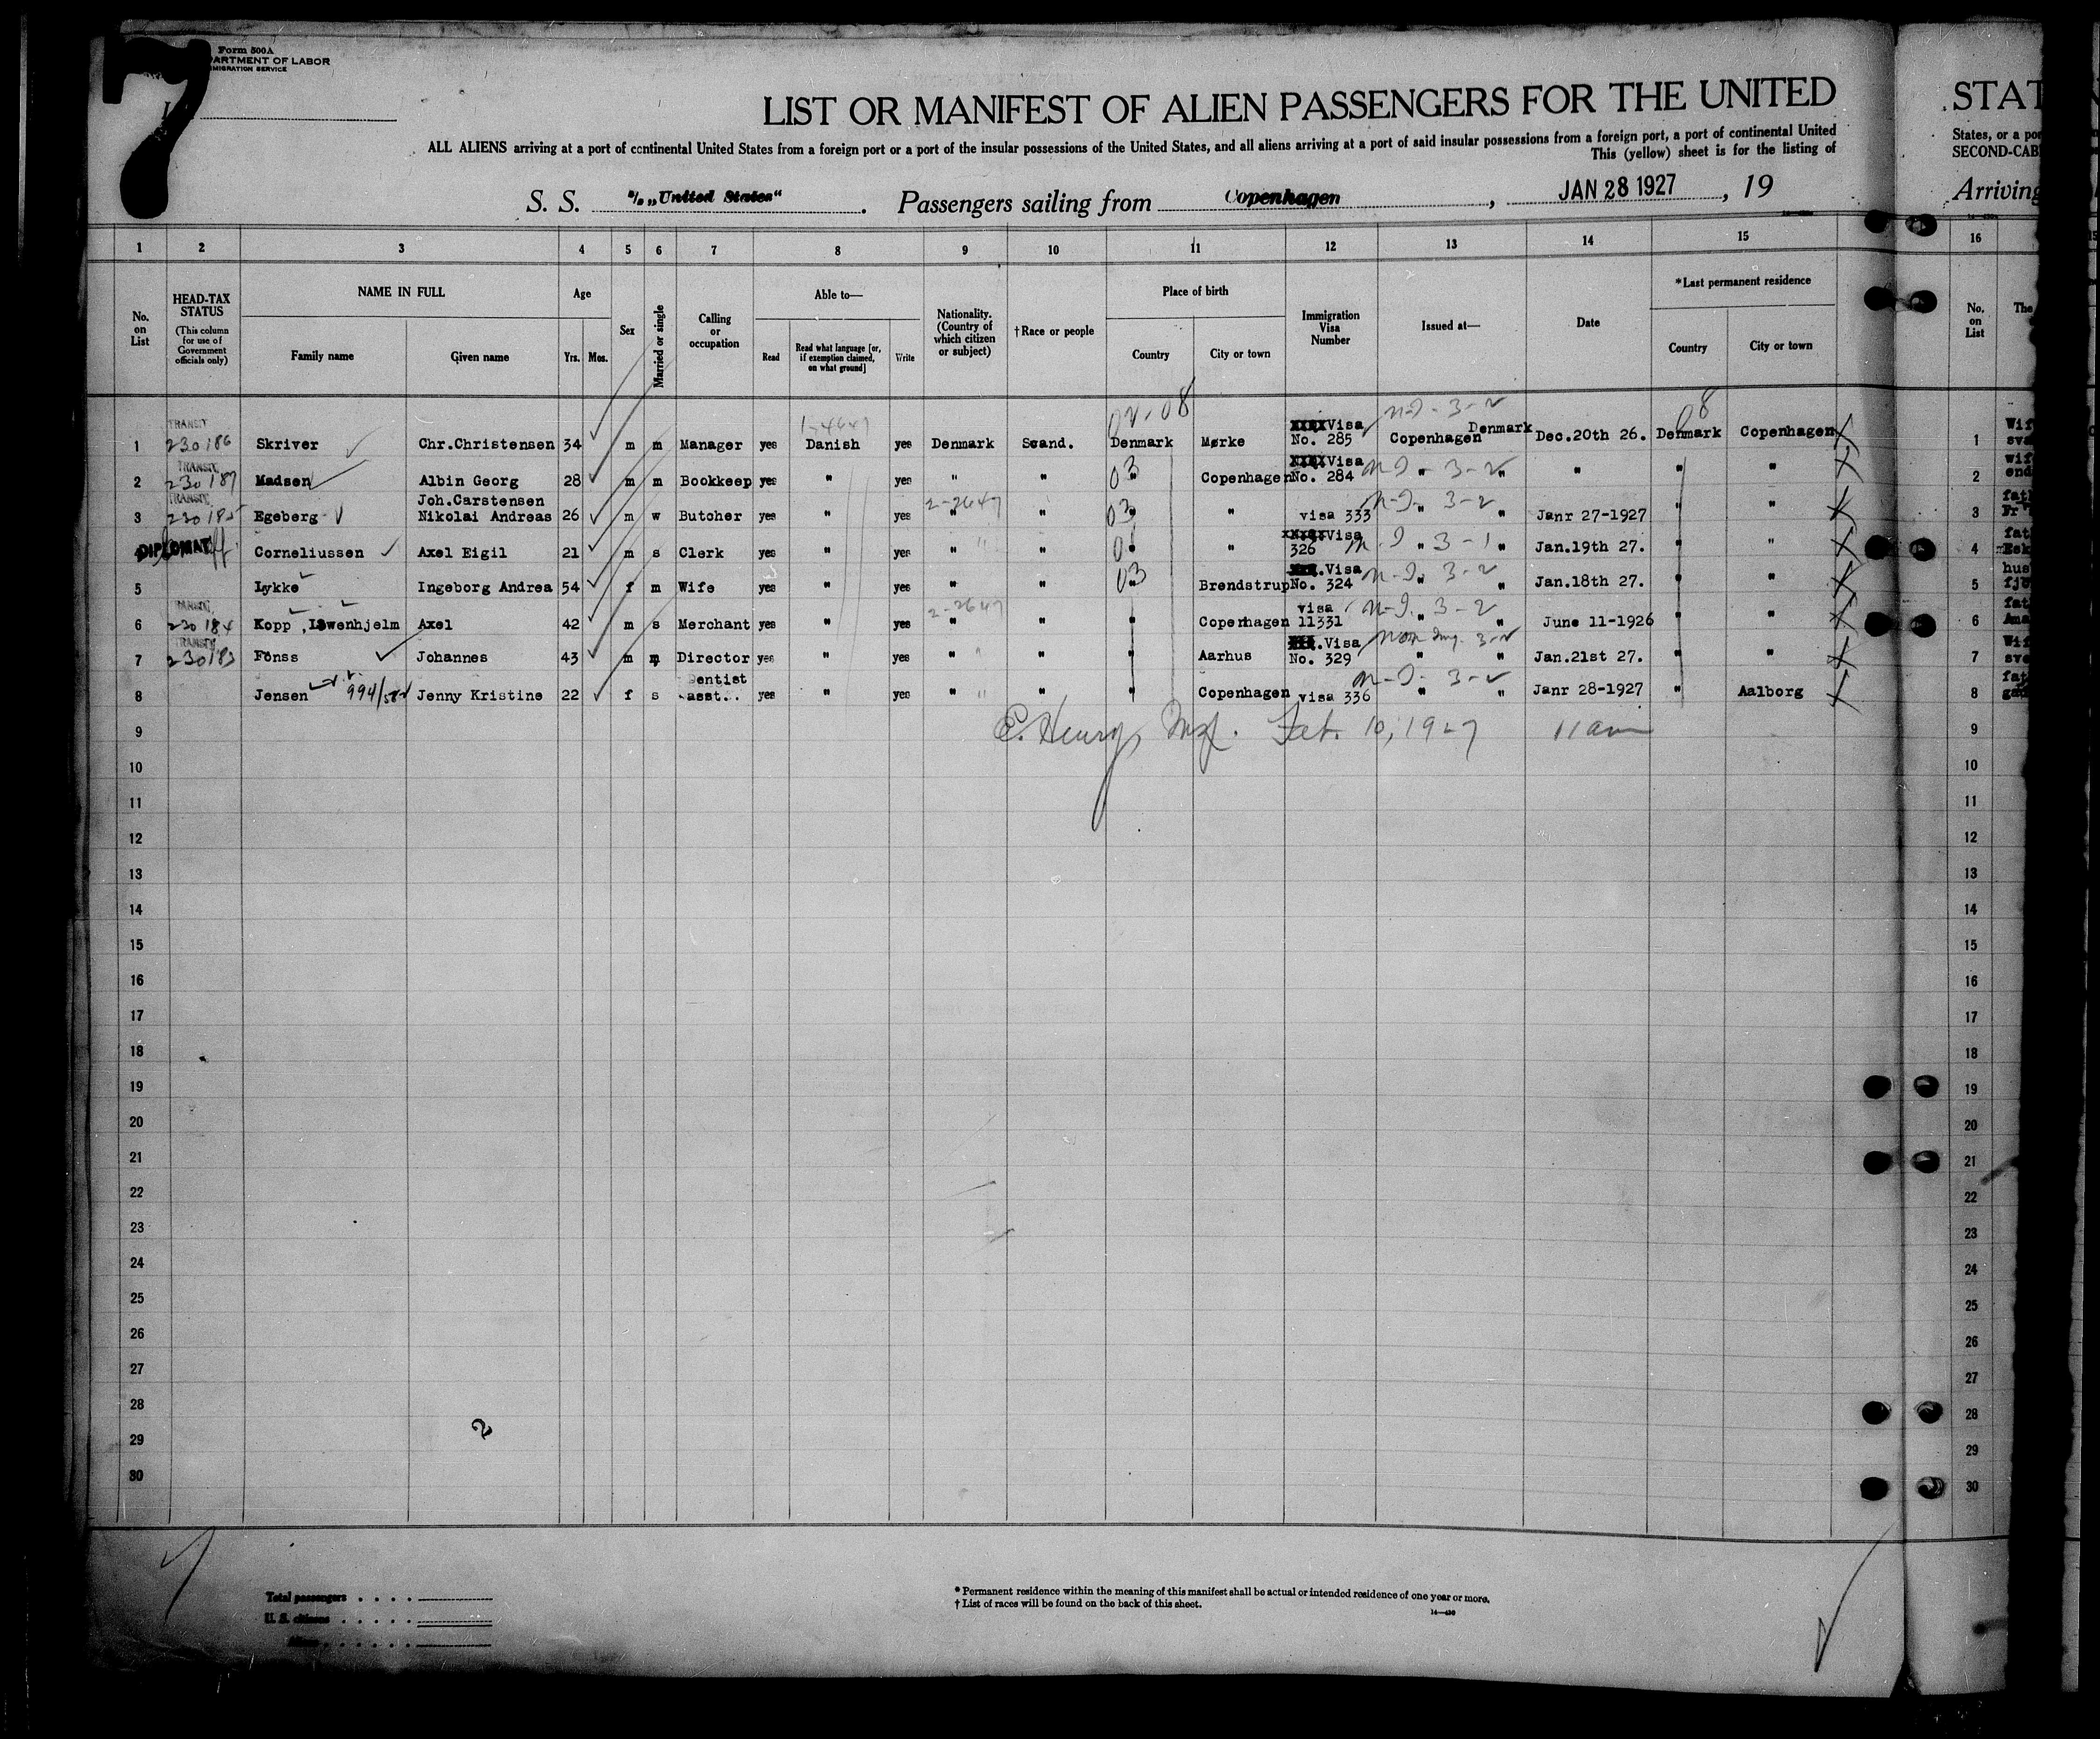 7
Form 500A
DEPARTMENT OF LABOR
IMMIGRATION SERVICE
LIST OR MANIFEST OF ALIEN PASSENGERS FOR THE UNITED
ALL ALIENS arriving at a port of continental United States from a foreign port or a port of the insular possessions of the United States, and all aliens arriving at a port of said insular possessions from a foreign port, a port of continental United
This (yellow) sheet is for the listing of
S. S. s/s „United States" . Passengers sailing from Copenhagen , JAN 28 1927 , 19
STAT
States, or a por
SECOND-CAB
Arriving
1 2 3 4 5 6 7 8 9 10 11 12 13 14 15 16
No. on List
HEAD-TAX STATUS (This column for use of Government officials only)
NAME IN FULL
Family name Given name
Age
Yrs. Mos.
Sex
Married or single
Calling or occupation
Able to—
Read Read what language [or, if exemption claimed, on what ground] Write
Nationality. (Country of which citizen or subject)
†Race or people
Place of birth
Country City or town
Immigration Visa Number
Issued at—
Date
*Last permanent residence
Country City or town
No. on List
The
02-08 08
1 TRANSIT 230186 Skriver Chr.Christensen 34 m m Manager yes Danish yes Denmark Scand. Denmark Mørke Visa No. 285 Copenhagen Denmark Dec.20th 26. Denmark Copenhagen 1 Wif
2 TRANSIT 230187 Madsen Albin Georg 28 m m Bookkeep yes " yes " " 03 " Copenhagen Visa No. 284 " 3-2 " " " " 2 wif
3 TRANSIT 230185 Egeberg Joh.Carstensen Nikolai Andreas 26 m w Butcher yes " yes 2-2647 " " 03 " " visa 333 " 3-2 " Janr 27-1927 " " 3 fat
4 DIPLOMAT Corneliussen Axel Eigil 21 m s Clerk yes " yes " " " " Visa 326 " 3-1 " Jan.19th 27. " " 4 fat
5 Lykke Ingeborg Andrea 54 f m Wife yes " yes " " 03 " Brendstrup Visa No. 324 " 3-2 " Jan.18th 27. " " 5 hus
6 TRANSIT 230184 Kopp ,Løwenhjelm Axel 42 m s Merchant yes " yes 2-2647 " " " Copenhagen visa 11331 " 3-2 " June 11-1926 " " 6 fat
7 TRANSIT 230183 Fönss Johannes 43 m m Director yes " yes " " " Aarhus Visa No. 329 " 3-2 " Jan.21st 27. " " 7 Wif
8 Jensen Jenny Kristine 22 f s Dentist asst.. yes " yes " " " Copenhagen visa 336 " 3-2 " Janr 28-1927 " Aalborg 8 fat
9 E. Henry Feb. 10, 1927 11am 9
10 10
11 11
12 12
13 13
14 14
15 15
16 16
17 17
18 18
19 19
20 20
21 21
22 22
23 23
24 24
25 25
26 26
27 27
28 28
29 29
30 30
2
Total passengers
U. S. citizens
Aliens
* Permanent residence within the meaning of this manifest shall be actual or intended residence of one year or more.
† List of races will be found on the back of this sheet.
14—430